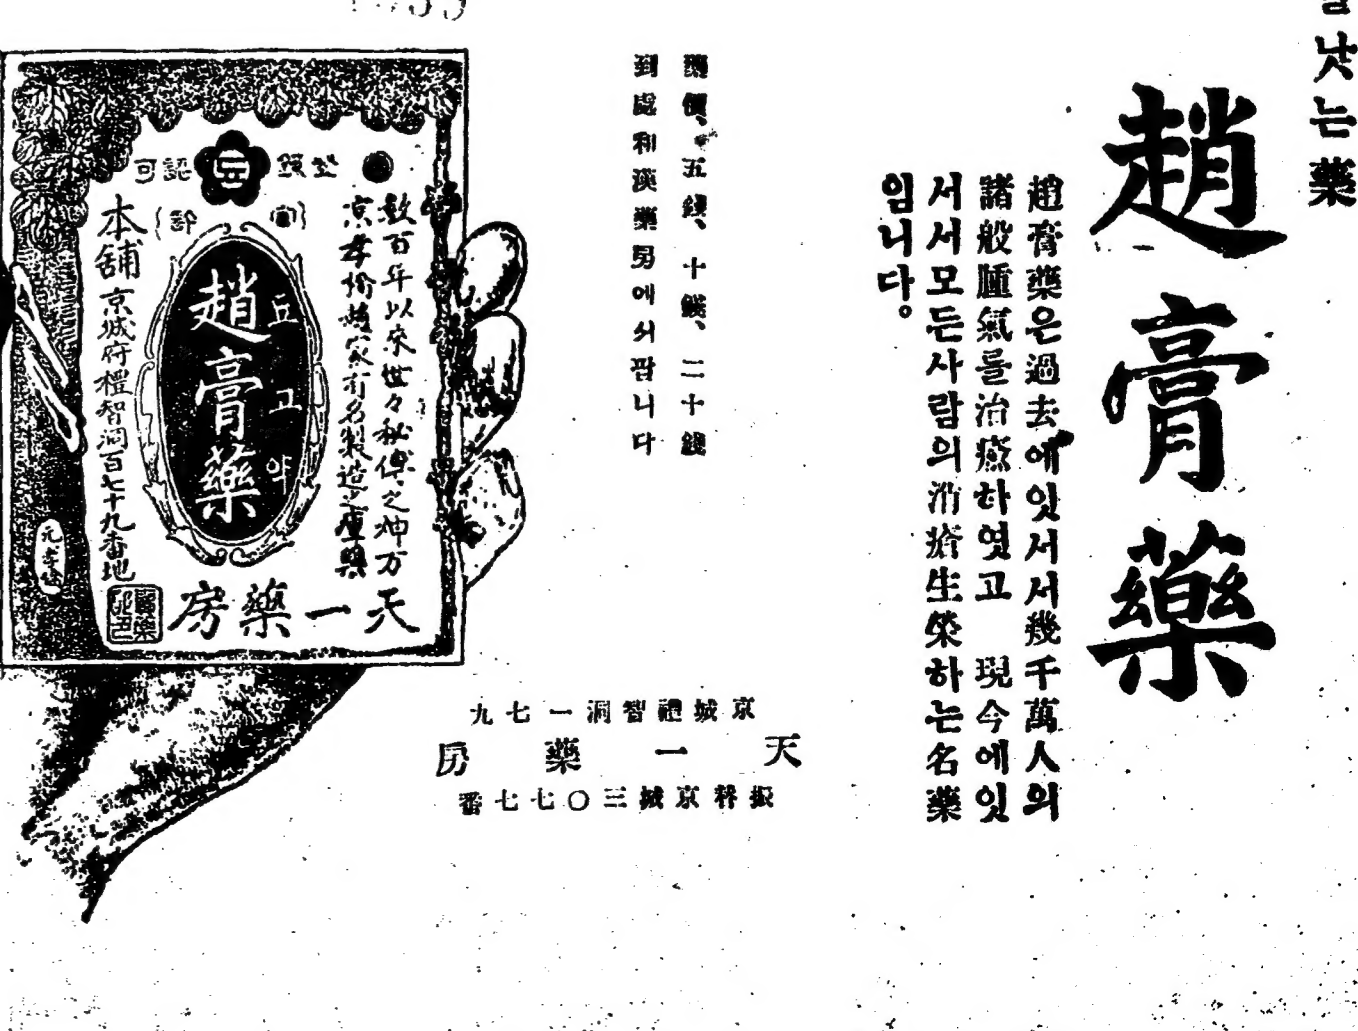 낫는藥
趙膏藥
趙膏藥은過去에잇서서幾千萬人의
諸般腫氣를治療하엿고 現今에잇
서서모든사람의消瘡生榮하는名藥
임니다。
價、五錢、十錢、二十錢
到處和漢藥房에서팜니다
京城禮智洞一七九
天一藥房
振替京城三〇七七番
數百年以來世々秘傳之神方
京孝橋趙家有名製造之膏藥
認可
趙膏藥
됴고약
本舖 京城府禮智洞百七十九番地
天一藥房